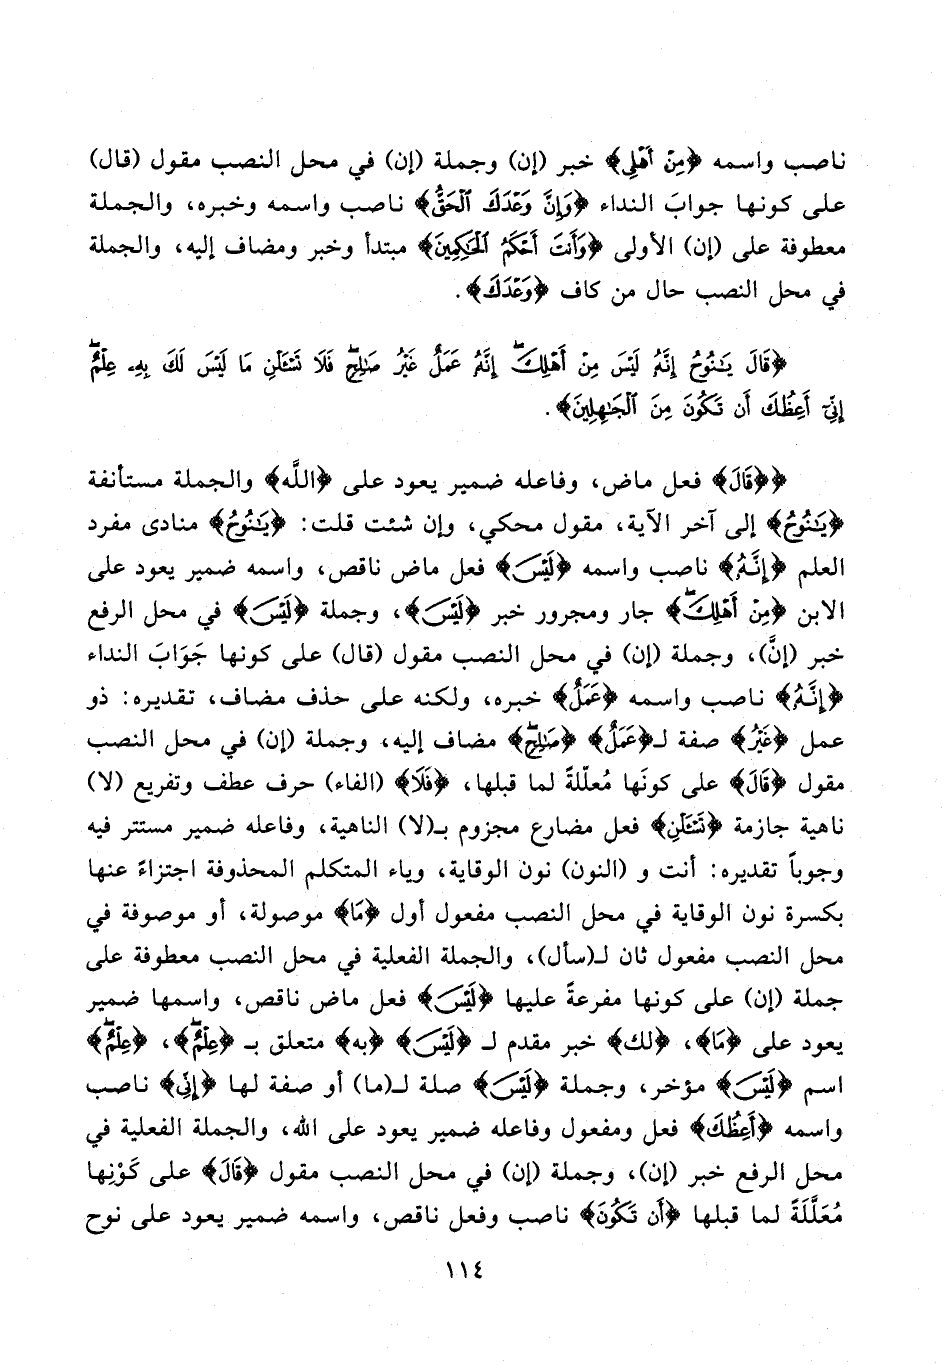 ناصب واسمه ﴿مِنْ أَهْلِي﴾ خبر (إن) وجملة (إن) في محل النصب مقول (قال)
على كونها جوابَ النداء ﴿وَإِنَّ وَعْدَكَ ٱلْحَقُّ﴾ ناصب واسمه وخبره، والجملة
معطوفة على (إن) الأولى ﴿وَأَنتَ أَحْكَمُ ٱلْحَٰكِمِينَ﴾ مبتدأ وخبر ومضاف إليه، والجملة
في محل النصب حال من كاف ﴿وَعْدَكَ﴾.
﴿قَالَ يَٰنُوحُ إِنَّهُۥ لَيْسَ مِنْ أَهْلِكَۖ إِنَّهُۥ عَمَلٌ غَيْرُ صَٰلِحٍۖ فَلَا تَسْـَٔلْنِ مَا لَيْسَ لَكَ بِهِۦ عِلْمٌۖ
إِنِّيٓ أَعِظُكَ أَن تَكُونَ مِنَ ٱلْجَٰهِلِينَ﴾.
﴿﴿قَالَ﴾ فعل ماض، وفاعله ضمير يعود على ﴿اللَّه﴾ والجملة مستأنفة
﴿يَٰنُوحُ﴾ إلى آخر الآية، مقول محكي، وإن شئت قلت: ﴿يَٰنُوحُ﴾ منادى مفرد
العلم ﴿إِنَّهُۥ﴾ ناصب واسمه ﴿لَيْسَ﴾ فعل ماض ناقص، واسمه ضمير يعود على
الابن ﴿مِنْ أَهْلِكَۖ﴾ جار ومجرور خبر ﴿لَيْسَ﴾، وجملة ﴿لَيْسَ﴾ في محل الرفع
خبر (إنَّ)، وجملة (إن) في محل النصب مقول (قال) على كونها جَوَابَ النداء
﴿إِنَّهُۥ﴾ ناصب واسمه ﴿عَمَلٌ﴾ خبره، ولكنه على حذف مضاف، تقديره: ذو
عمل ﴿غَيْرُ﴾ صفة لـ﴿عَمَلٌ﴾ ﴿صَٰلِحٍۖ﴾ مضاف إليه، وجملة (إن) في محل النصب
مقول ﴿قَالَ﴾ على كونَها مُعلّلةً لما قبلها، ﴿فَلَا﴾ (الفاء) حرف عطف وتفريع (لا)
ناهية جازمة ﴿تَسْـَٔلْنِ﴾ فعل مضارع مجزوم بـ(لا) الناهية، وفاعله ضمير مستتر فيه
وجوباً تقديره: أنت و (النون) نون الوقاية، وياء المتكلم المحذوفة اجتزاءً عنها
بكسرة نون الوقاية في محل النصب مفعول أول ﴿مَا﴾ موصولة، أو موصوفة في
محل النصب مفعول ثان لـ(سأل)، والجملة الفعلية في محل النصب معطوفة على
جملة (إن) على كونها مفرعةً عليها ﴿لَيْسَ﴾ فعل ماض ناقص، واسمها ضمير
يعود على ﴿مَا﴾، ﴿لك﴾ خبر مقدم لـ ﴿لَيْسَ﴾ ﴿به﴾ متعلق بـ ﴿عِلْمٌۖ﴾، ﴿عِلْمٌۖ﴾
اسم ﴿لَيْسَ﴾ مؤخر، وجملة ﴿لَيْسَ﴾ صلة لـ(ما) أو صفة لها ﴿إِنِّي﴾ ناصب
واسمه ﴿أَعِظُكَ﴾ فعل ومفعول وفاعله ضمير يعود على الله، والجملة الفعلية في
محل الرفع خبر (إن)، وجملة (إن) في محل النصب مقول ﴿قَالَ﴾ على كَوْنِها
مُعَلَّلَةً لما قبلها ﴿أَن تَكُونَ﴾ ناصب وفعل ناقص، واسمه ضمير يعود على نوح
١١٤